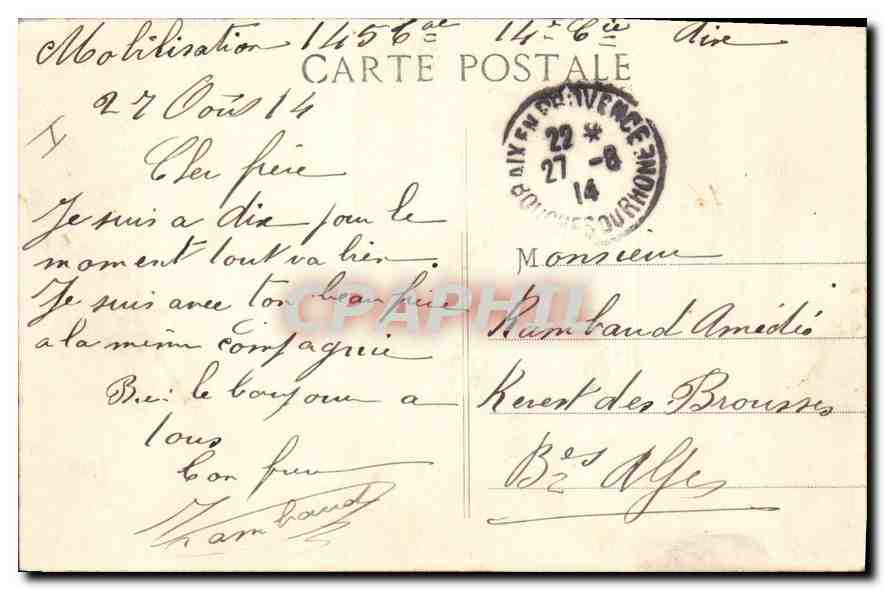 Mobilisation 145 Cae 14e Cie Aixe
CARTE POSTALE
27 Oous 14
Cher frère
Je suis a Aix pour le
moment tout va bien.
Je suis avec ton beau frère
a la même compagnie
le bonjour a
tous
Ton frere
Rambaud
AIX EN PROVENCE
22 *
27 -8
14
BOUCHES DU RHONE
Monsieur
Rambaud Amédié
Revest des Brousses
Bses Alpes
CPAPHIL